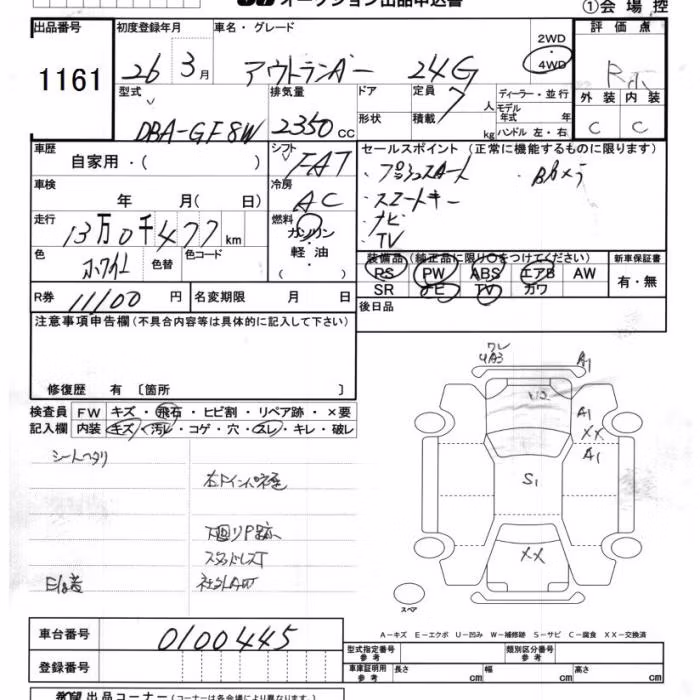 オークション出品申込書
①会場控
出品番号 初度登録年月 車名・グレード 評価点
1161 26 3月 アウトランダー 24G 2WD 4WD
型式 排気量 ドア 定員 7人 ディーラー・並行 外装 内装
モデル年式 年
DBA-GF8W 2350cc 形状 積載 kg ハンドル 左・右 C C
車歴 シフト セールスポイント(正常に機能するものに限ります)
自家用・( ) FAT ・プッシュスタート ・Bカメラ
車検 冷房 ・スマートキー
年 月( 日) AC ・ナビ
走行 燃料 ・TV
13万0千477km ガソリン
色 色替 色コード 軽油 装備品(純正品に限り○をつけてください) 新車保証書
ホワイト ( ) PS PW ABS エアB AW 有・無
R券 11100円 名変期限 月 日 SR ナビ TV カワ
注意事項申告欄(不具合内容等は具体的に記入して下さい) 後日品
修復歴 有 〔箇所 〕
検査員 FW キズ・飛石・ヒビ割・リペア跡・×要
記入欄 内装 キズ・汚レ・コゲ・穴・スレ・キレ・破レ
ワレ
4A3 A1
U2
A1
XX
A1
S1
XX
シートヘタリ
下廻りP跡
スタッドレスT
社外AW
スペア
A-キズ E-エクボ U-凹み W-補修跡 S-サビ C-腐食 XX-交換済
車台番号 0100445 型式指定番号 参考 類別区分番号 参考
登録番号 車庫証明用 参考 長さ cm 幅 cm 高さ cm
出品コーナー(コーナーは各会場により異なります)